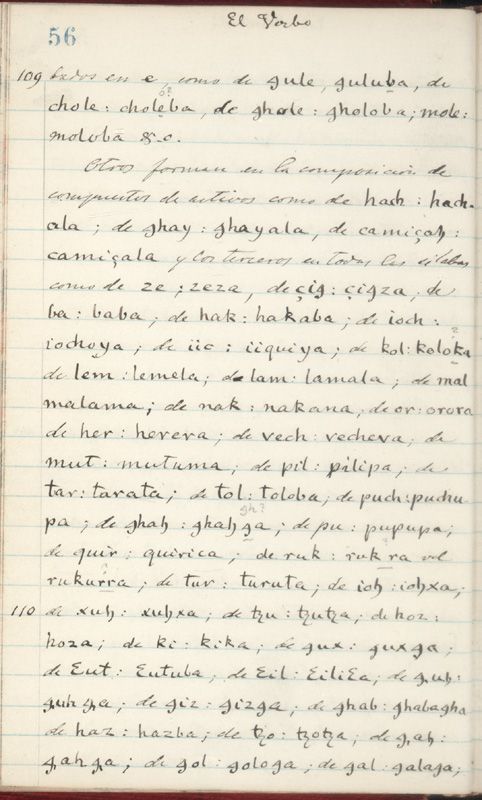 El Verbo
56
109 bados en e, como de gule, guluba, de
chole: choleba, de ghole: gholoba; mole:
moloba &.c.
Otros forman en la composicion de
compuestos de activos como de hach: hach-
ala; de ghay: ghayala, de camiçah:
camiçala y los terceros en todas las silabas
como de ze; zeza, de çig: çigza, de
ba: baba; de hak: hakaba; de ioch:
iochoya; de iic: iiquiya; de kol: koloka
de lem: lemela; de lam: lamala; de mal
malama; de nak: nakana, de or: orora
de her: herera; de vech: vecheva; de
mut: mutuma; de pil: pilipa; de
tar: tarata; de tol: toloba; de puch: puchu-
pa; de ghah: ghahga; de pu: pupupa;
gh?
de quir: quirica; de ruk: rukra vel
rukurra; de tur: turuta; de ioh: iohxa;
110 de xuh: xuhxa; de tzu: tzutza; de hoz:
hoza; de ki: kika; de gux: guxga;
de Ɛut: Ɛutuba; de Ɛil: ƐiliƐa; de guh:
guhga; de giz: gizga; de ghab: ghabagha
de haz: hazba; de tzo: tzotza; de gah:
gahga; de gol: gologa; de gal: galaga;